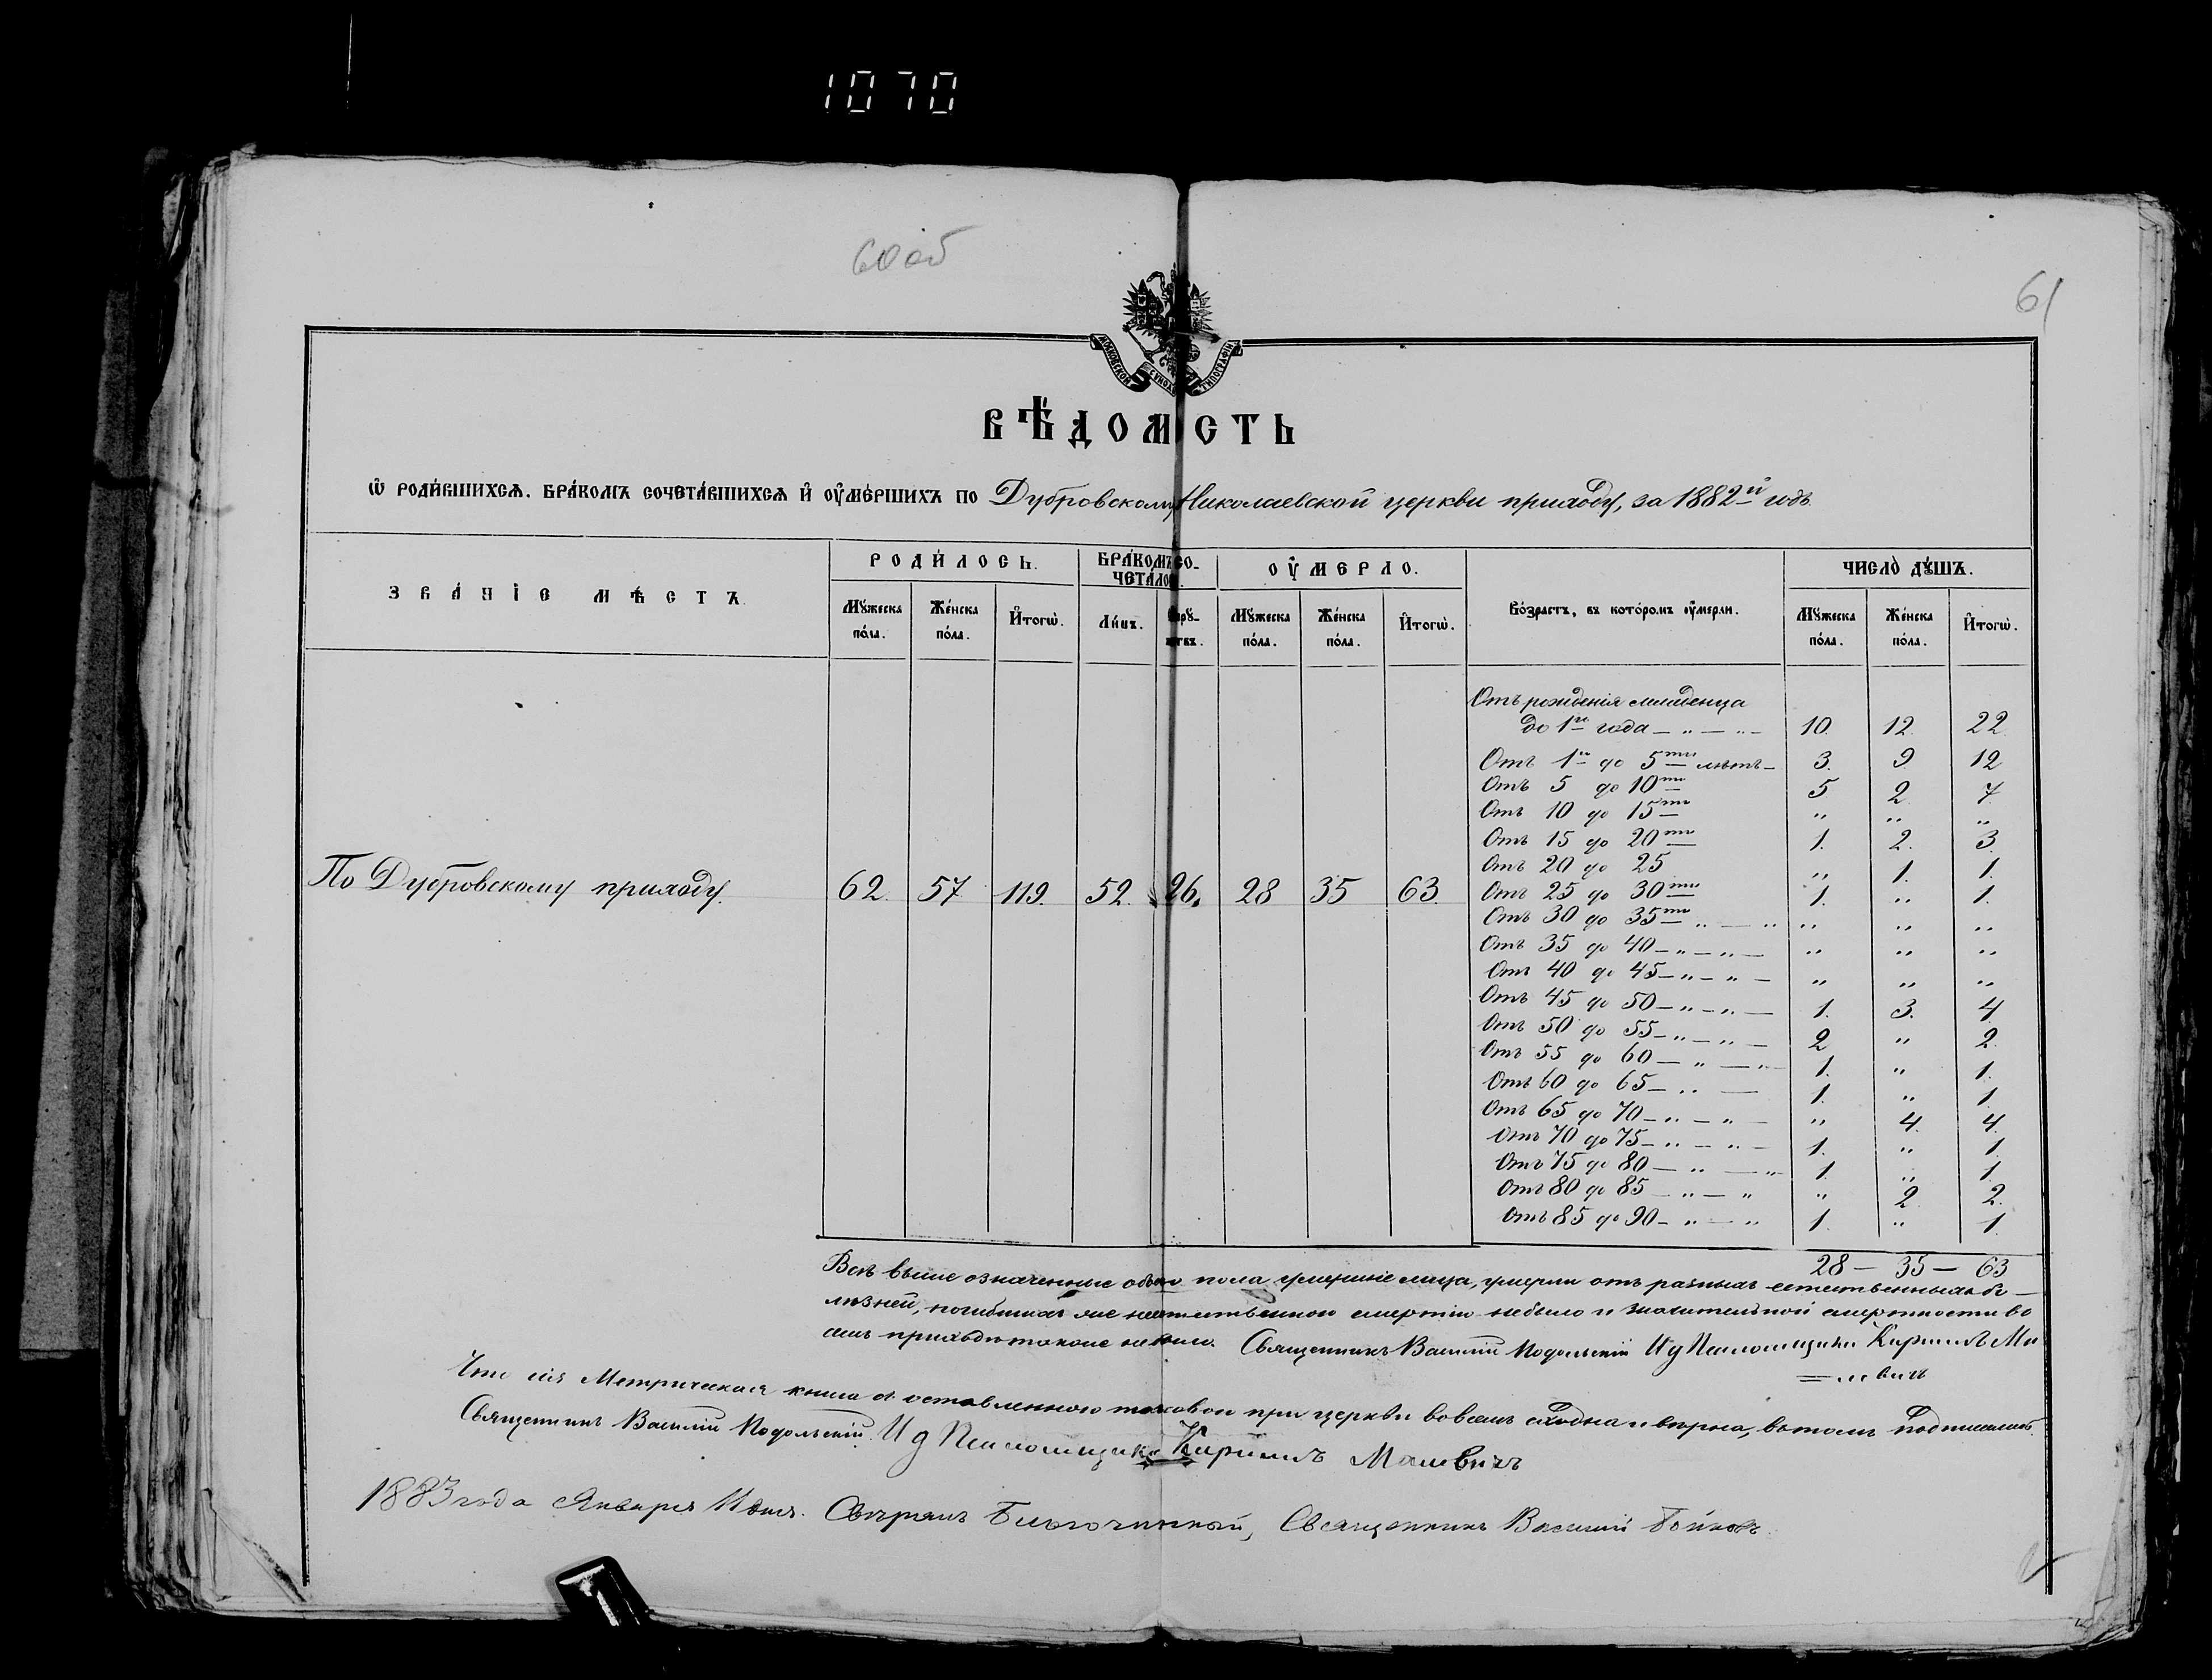 1070
60 об
61
МОСКОВСКОЙ СѴНОД ТИПОГРАФІИ
ВѢДОМОСТЬ
Ѽ РОДИ́ВШИХСѦ, БРА́КОМЪ СОЧЕТА́ВШИХСѦ И҆ ОУ҆МЕ́РШИХЪ ПО Дубровскому Николаевской церкви приходу, за 1882й годъ.
ЗВА́НІЕ МѢ́СТЪ
РОДИ́ЛОСЬ.
БРА́КОМЪ СО-
ЧЕТА́ЛОСЬ
ОУ҆МЕРЛО.
Во́зрастъ, въ кото́ромъ оу҆мерли.
ЧИСЛО̀ ДꙊ́ШЪ.
Мꙋ́жеска по́ла. Же́нска по́ла. И҆тогѡ̀. Ли́цъ. Мꙋ́жеска по́ла. Же́нска по́ла. И҆тогѡ̀. Мꙋ́жеска по́ла. Же́нска по́ла. И҆тогѡ̀.
По Дубровскому приходу. 62. 57 119. 52. 26. 28 35 63.
Отъ рожденія младенца
до 1го года — „ — „ — 10. 12. 22
Отъ 1го до 5ти лѣтъ — 3. 9 12
Отъ 5 до 10ти 5 2 7
Отъ 10 до 15ти „ „ „
Отъ 15 до 20ти 1. 2. 3
Отъ 20 до 25 „ 1. 1.
Отъ 25 до 30ти 1. „ 1.
Отъ 30 до 35ти „ — „ „ „ „
Отъ 35 до 40 — „ — „ — „ „ „
Отъ 40 до 45 — „ — „ — „ „ „
Отъ 45 до 50 — „ — „ — 1. 3. 4
Отъ 50 до 55 — „ — „ — 2 „ 2.
Отъ 55 до 60 — „ — „ 1. „ 1.
Отъ 60 до 65 — „ — 1. „ 1.
Отъ 65 до 70 — „ — „ — „ 4. 4.
Отъ 70 до 75 — „ — „ — 1. „ 1.
Отъ 75 до 80 — „ — „ 1. „ 1.
Отъ 80 до 85 — „ — „ „ 2 2.
Отъ 85 до 90 — „ — „ 1. „ 1.
28 — 35 — 63
Всѣ выше означенные обоего пола умершіе лица, умерли отъ разныхъ естественныхъ бо—
лѣзней, погибшихъ же неестественною смертію небыло и значительной смертности въ
семъ приходѣ также небыло. Священникъ Василій Подольскій И д Псаломщика Кириллъ Ма
=левичъ
Что сія Метрическая книга съ оставленною таковою при церкви вовсемъ сходна и вѣрна, въ томъ подписались:
Священникъ Василій Подольскій. И д Псаломщика Кириллъ Малевичъ
1883 года Января 11 дня. Свѣрялъ Благочинный, Священникъ Василій